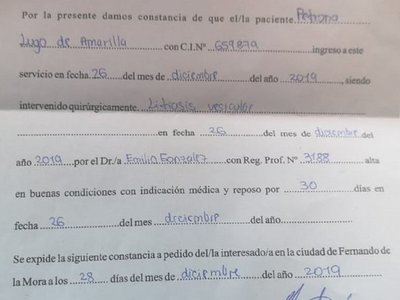 Por la presente damos constancia de que el/la paciente Petrona
Lugo de Amarilla con C.I.Nº 659879 ingreso a este
servicio en fecha 26 del mes de diciembre del año 2019, siendo
intervenido quirúrgicamente. Litiosis vesicular
en fecha 26 del mes de diciembre del
año 2019 por el Dr./a Emilio Gonzalez con Reg. Prof. Nº 3188 alta
en buenas condiciones con indicación médica y reposo por 30 días en
fecha 26 del mes diciembre del año
Se expide la siguiente constancia a pedido del/la interesado/a en la ciudad de Fernando de
la Mora a los 28 días del mes de diciembre del año 2019